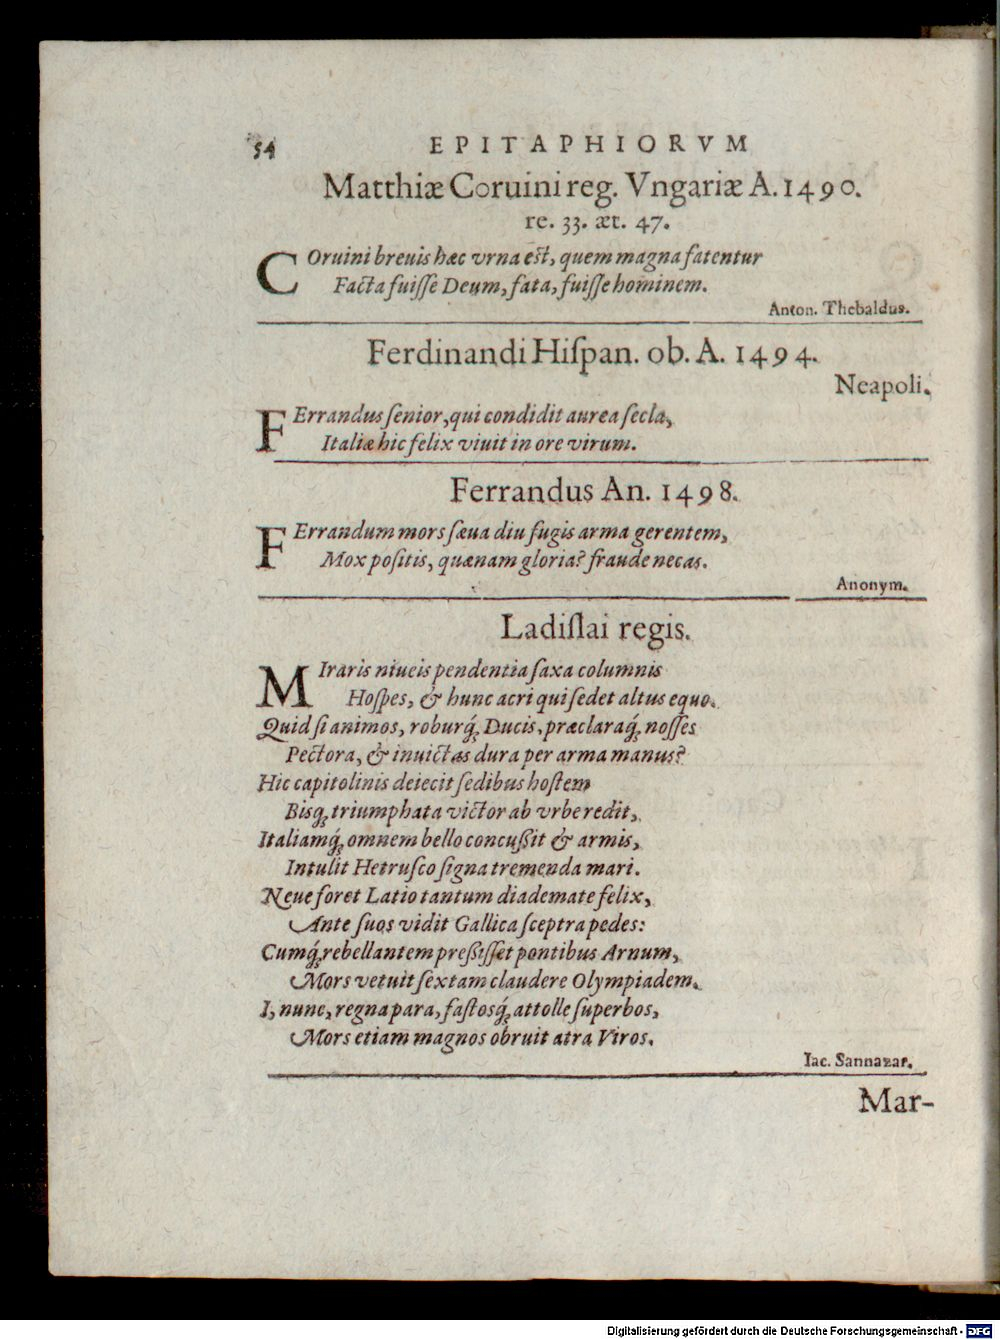 54 EPITAPHIORVM
Matthiæ Coruini reg. Vngariæ A. 1490.
re. 33. æt. 47.
COruini breuis hæc vrna est, quem magna fatentur
Facta fuiſſe Deum, fata, fuiſſe hominem.
Anton. Thebaldus.
Ferdinandi Hiſpan. ob. A. 1494.
Neapoli.
FErrandus ſenior, qui condidit aurea ſecla,
Italiæ hic felix viuit in ore virum.
Ferrandus An. 1498.
FErrandum mors ſæua diu fugis arma gerentem,
Mox poſitis, quænam gloria? fraude necas.
Anonym.
Ladiſlai regis.
MIraris niueis pendentia ſaxa columnis
Hoſpes, & hunc acri qui ſedet altus equo.
Quid ſi animos, roburq́; Ducis, præclaraq́; noſſes
Pectora, & inuictas dura per arma manus?
Hic capitolinis deiecit ſedibus hoſtem
Bisq; triumphata victor ab vrbe redit,
Italiamq́; omnem bello concuſſit & armis,
Intulit Hetruſco ſigna tremenda mari.
Neue foret Latio tantum diademate felix,
Ante ſuos vidit Gallica ſceptra pedes:
Cumq́; rebellantem preſſiſſet pontibus Arnum,
Mors vetuit ſextam claudere Olympiadem.
I, nunc, regna para, faſtosq́; attolle ſuperbos,
Mors etiam magnos obruit atra Viros.
Iac. Sannazar.
Mar-
Digitalisierung gefördert durch die Deutsche Forschungsgemeinschaft - DFG